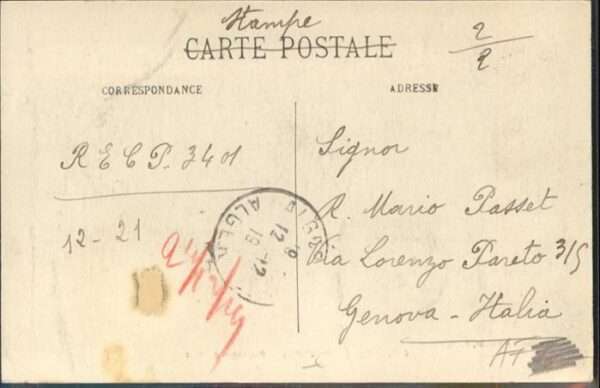 Stampe
CARTE POSTALE
2/2
CORRESPONDANCE
ADRESSE
R E C P. 3401
12-21
Signor
R. Mario Passet
Via Lorenzo Pareto 3/5
Genova - Italia
ALGER
12
12
19
AT